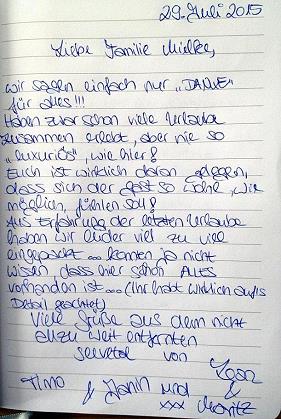 29. Juli 2015
Liebe Familie Mielke,
wir sagen einfach nur "DANKE"
für alles!!!
Haben zwar schon viele Urlaube
zusammen erlebt, aber nie so
"luxuriös", wie hier!
Euch ist wirklich daran gelegen,
dass sich der Gast so wohl, wie
möglich, fühlen soll!
Aus Erfahrung der letzten Urlaube
haben wir leider viel zu viel
eingepackt... konnten ja nicht
wissen, dass hier schon ALLES
vorhanden ist... (Ihr habt wirklich aufs
Detail geachtet)
Viele Grüße aus dem nicht
allzu weit entfernten
von
Timo & Janin und & Moritz
xxx